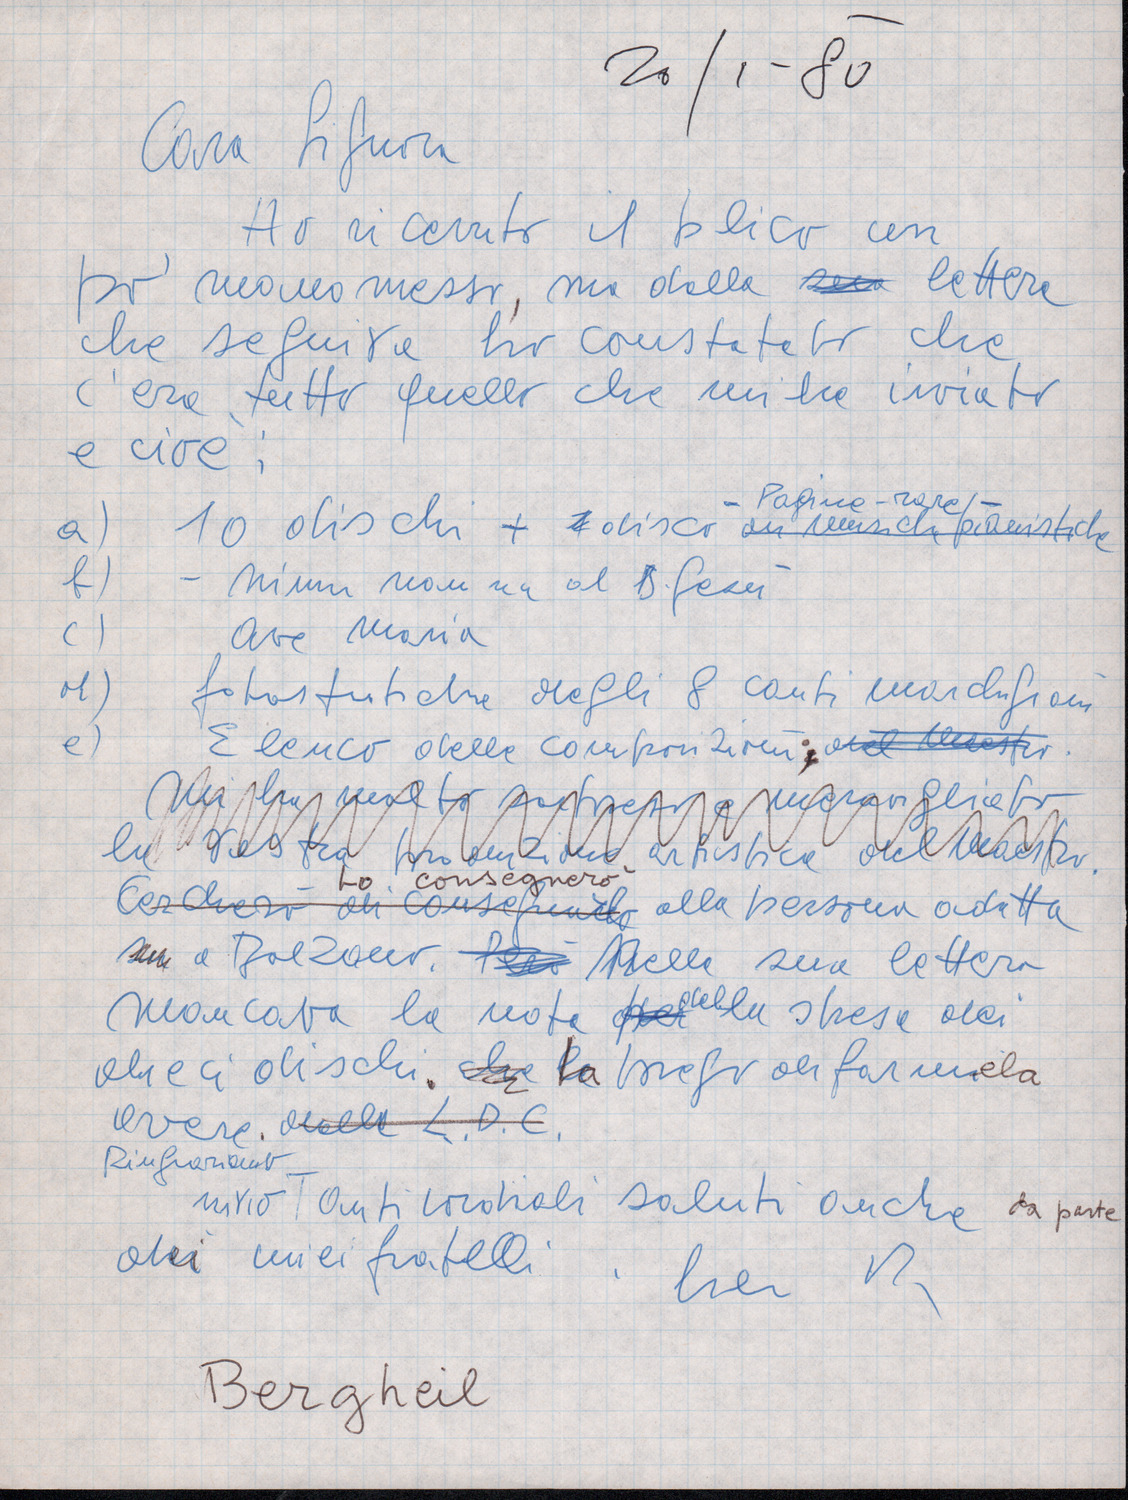 20/1-80
Cara Signora
Ho ricevuto il plico un
po' manomesso, ma dalla sua lettera
che seguiva ho constatato che
c'era tutto quello che mi ha inviato
e cioè:
a) 10 dischi + 1 disco di musiche pianistiche
- Pagine-rare -
b) - Ninna nanna al B. Gesù
c) Ave Maria
d) fotostatiche degli 8 canti
e) Elenco delle composizioni; del Maestro.
Mi ha molto sorpreso e meravigliato
la vasta produzione artistica del Maestro.
Lo consegnerò
Cercherò di consegnarlo alla persona adatta
a Bolzano. Però Nella sua lettera
mancava la nota della spesa dei
dieci dischi. che La prego di farmela
avere. dalla L.D.C.
Ringraziando
invio tanti cordiali saluti anche da parte
dei miei fratelli.
Bergheil